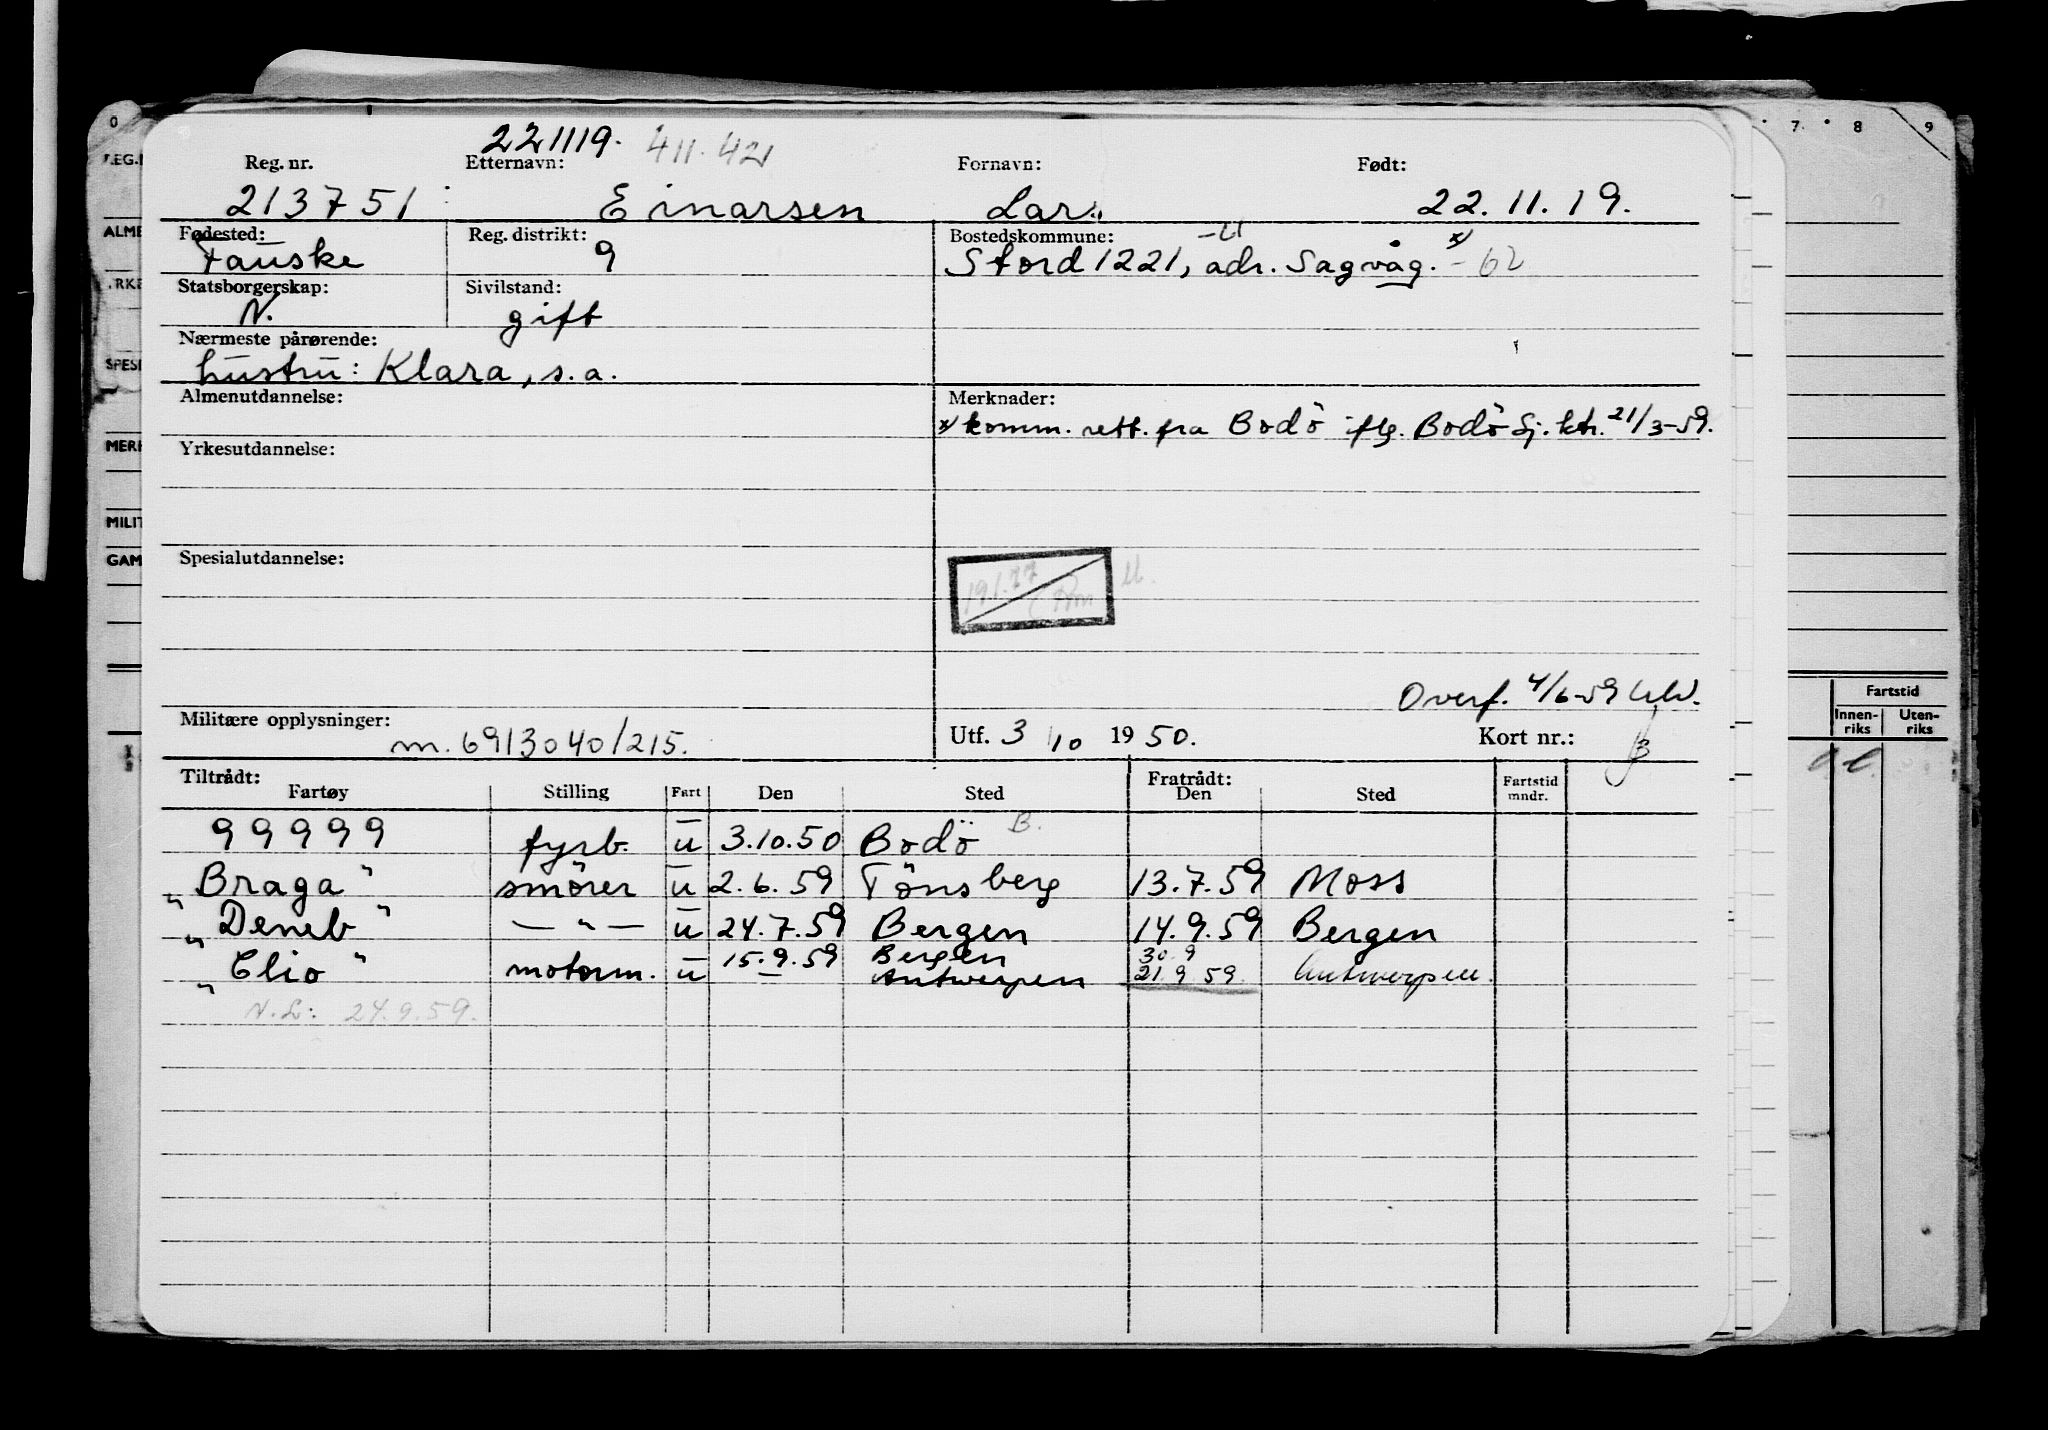 221119. 411.421
Reg. nr. Etternavn: Fornavn: Født:
213751 Einarsen Lars 22.11.19.
Fødested: Reg. distrikt: Bostedskommune:
Fauske 9 Stord 1221, adr. Sagvåg. x/ - 62
Statsborgerskap: Sivilstand:
N. gift
Nærmeste pårørende:
hustru: Klara, s.a.
Almenutdannelse: Merknader:
x/ komm. rett. fra Bodö iflg. Bodö Sj. ktr. 21/3-59.
Yrkesutdannelse:
Spesialutdannelse:
Overf. 4/6-59
Militære opplysninger: Utf. 3/10 1950. Kort nr.: 3
m. 6913040/215.
Tiltrådt: Fratrådt:
Fartøy Stilling Fart Den Sted Den Sted Fartstid mndr.
99999 fyrb. u 3.10.50 Bodö B.
"Braga" smörer u 2.6.59 Tönsberg 13.7.59 Moss
"Deneb" — " — u 24.7.59 Bergen 14.9.59 Bergen
"Clio" motorm. u 15.9.59 Bergen 30.9
— Antwerpen 21.9.59. Antwerpen.
N.L: 24.9.59.
0 7 8 9
ALME
SPESI
MERK
MILIT
GAM
Fartstid
Innen-riks Uten-riks